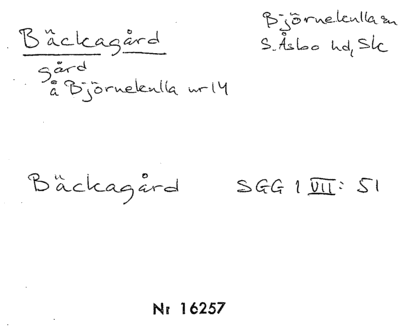 Bäckagård
gård
å Björnekulla nr 14
Björnekulla sn
S. Åsbo hd, Sk
Bäckagård SGG 1 VII: 51
Nr 16257